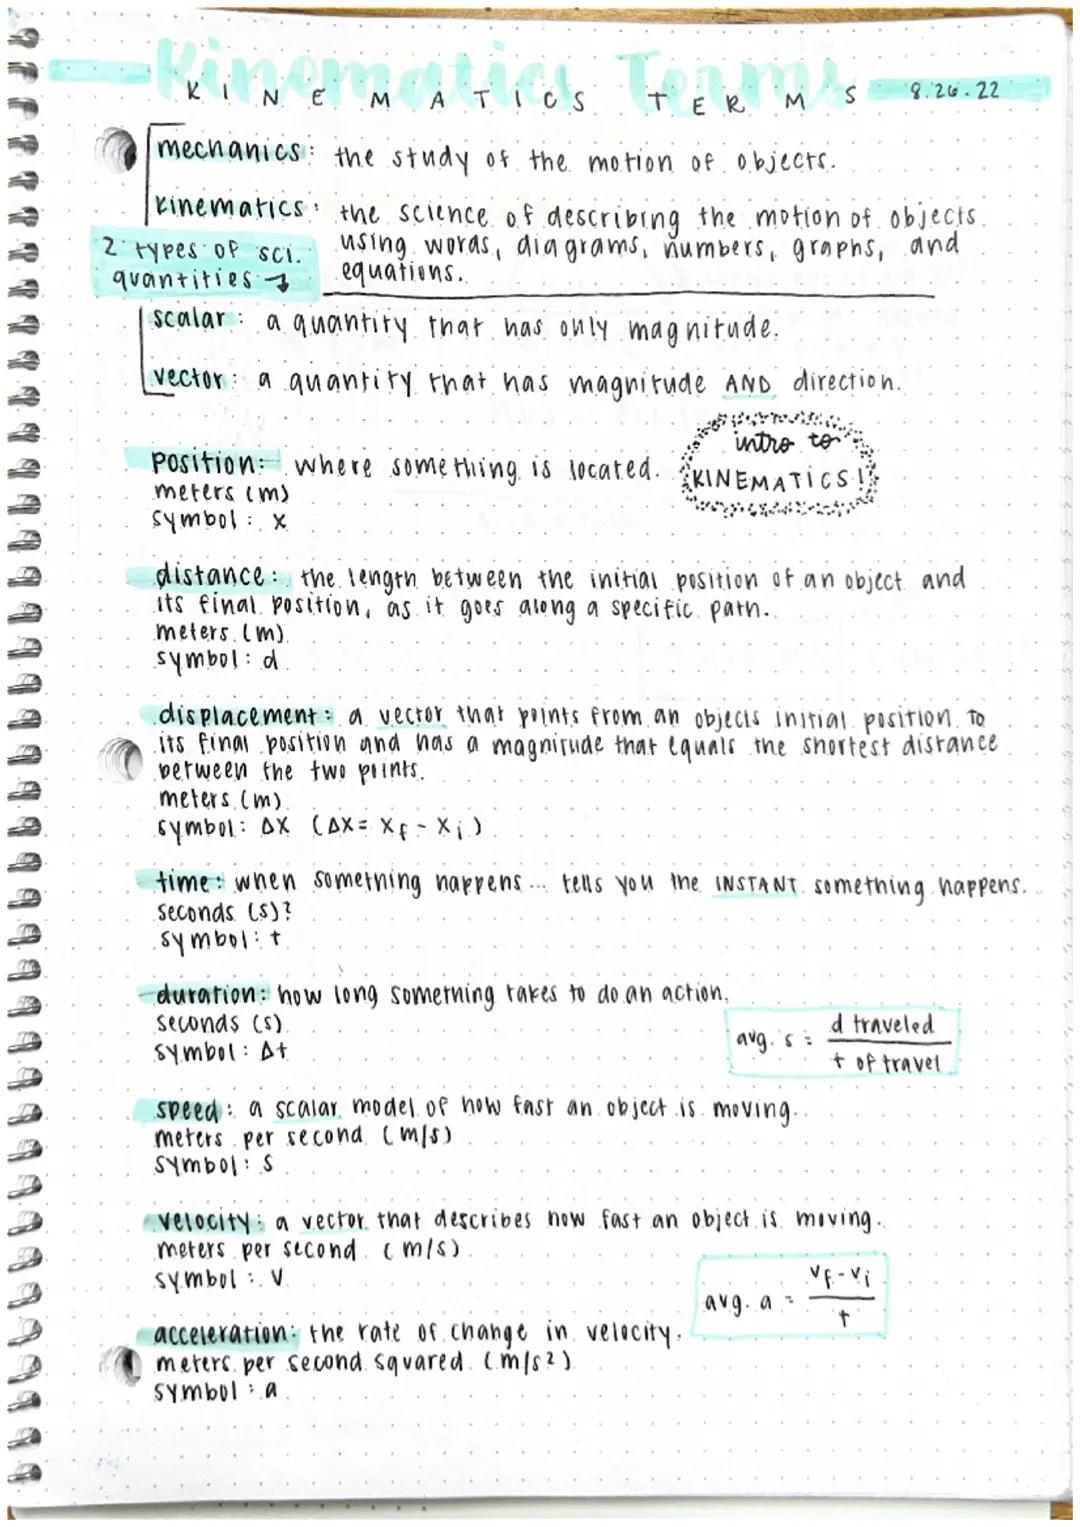 Kinematics Terms
KINEMATICS TERMS 8.26.22
mechanics: the study of the motion of objects.
kinematics: the science of describing the motion of objects
using words, diagrams, numbers, graphs, and
equations.
2 types of sci.
quantities →
scalar: a quantity that has only magnitude.
vector: a quantity that has magnitude AND direction.
intro to
KINEMATICS!
position: where something is located.
meters (m)
symbol: x
distance: the length between the initial position of an object and
its final position, as it goes along a specific path.
meters (m)
symbol: d
displacement: a vector that points from an objects initial position to
its final position and has a magnitude that equals the shortest distance
between the two points.
meters (m)
symbol: Δx (Δx = xf - xi)
time: when something happens... tells you the INSTANT something happens.
seconds (s)?
symbol: t
duration: how long something takes to do an action.
seconds (s)
symbol: Δt
avg. s = d traveled
t of travel
speed: a scalar model of how fast an object is moving.
meters per second (m/s)
symbol: s
velocity: a vector that describes how fast an object is moving.
meters per second (m/s)
symbol: v
avg. a = vf - vi
t
acceleration: the rate of change in velocity.
meters per second squared (m/s²)
symbol: a